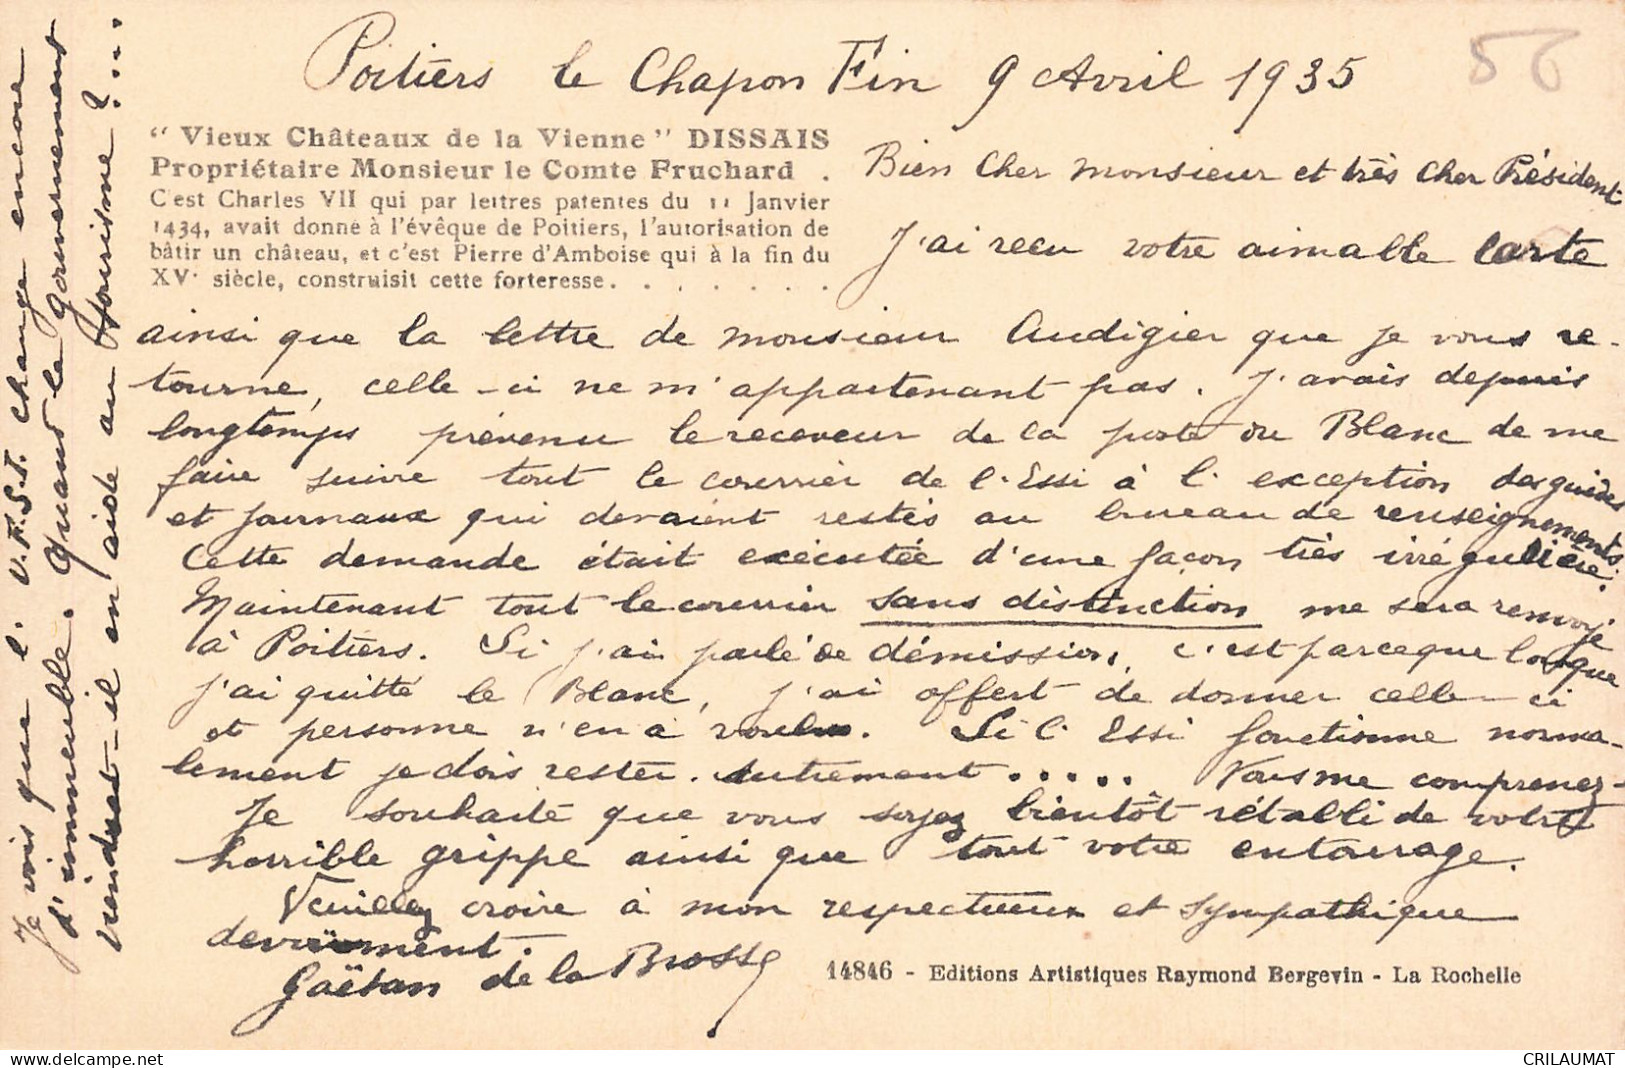 Poitiers le Chapon Fin 9 Avril 1935
56
"Vieux Châteaux de la Vienne" DISSAIS
Propriétaire Monsieur le Comte Fruchard .
C'est Charles VII qui par lettres patentes du 11 Janvier
1434, avait donné à l'évêque de Poitiers, l'autorisation de
bâtir un château, et c'est Pierre d'Amboise qui à la fin du
XVe siècle, construisit cette forteresse. . . . . . .
Bien Cher Monsieur et très Cher Président
J'ai reçu votre aimable carte
ainsi que la lettre de monsieur Audigier que je vous re-
tourne, celle-ci ne m'appartenant pas. J'avais depuis
longtemps prévenu le receveur de la poste du Blanc de me
faire suivre tout le courrier de l'Essi à l'exception des guides
et journaux qui devaient restés au bureau de renseignements.
Cette demande était exécutée d'une façon très irrégulière.
Maintenant tout le courrier sans distinction me sera renvoyé
à Poitiers. Si j'ai parlé de démission, c'est parceque lorsque
j'ai quitté le Blanc, j'ai offert de donner celle-ci
et personne n'en a voulu. Si l'Essi fonctionne norma-
lement je dois rester. Autrement ..... Vous me comprenez-
Je souhaite que vous soyez bientôt rétabli de votre
horrible grippe ainsi que tout votre entourage.
Veuillez croire à mon respectueux et sympathique
dévouement.
Gaëtan de la Brosse
14846 - Editions Artistiques Raymond Bergevin - La Rochelle
Je vois que l'U.F.S.I. change encore
d'immeuble. Quand le gouvernement
viendrat-il en aide au tourisme ?...
CRILAUMAT